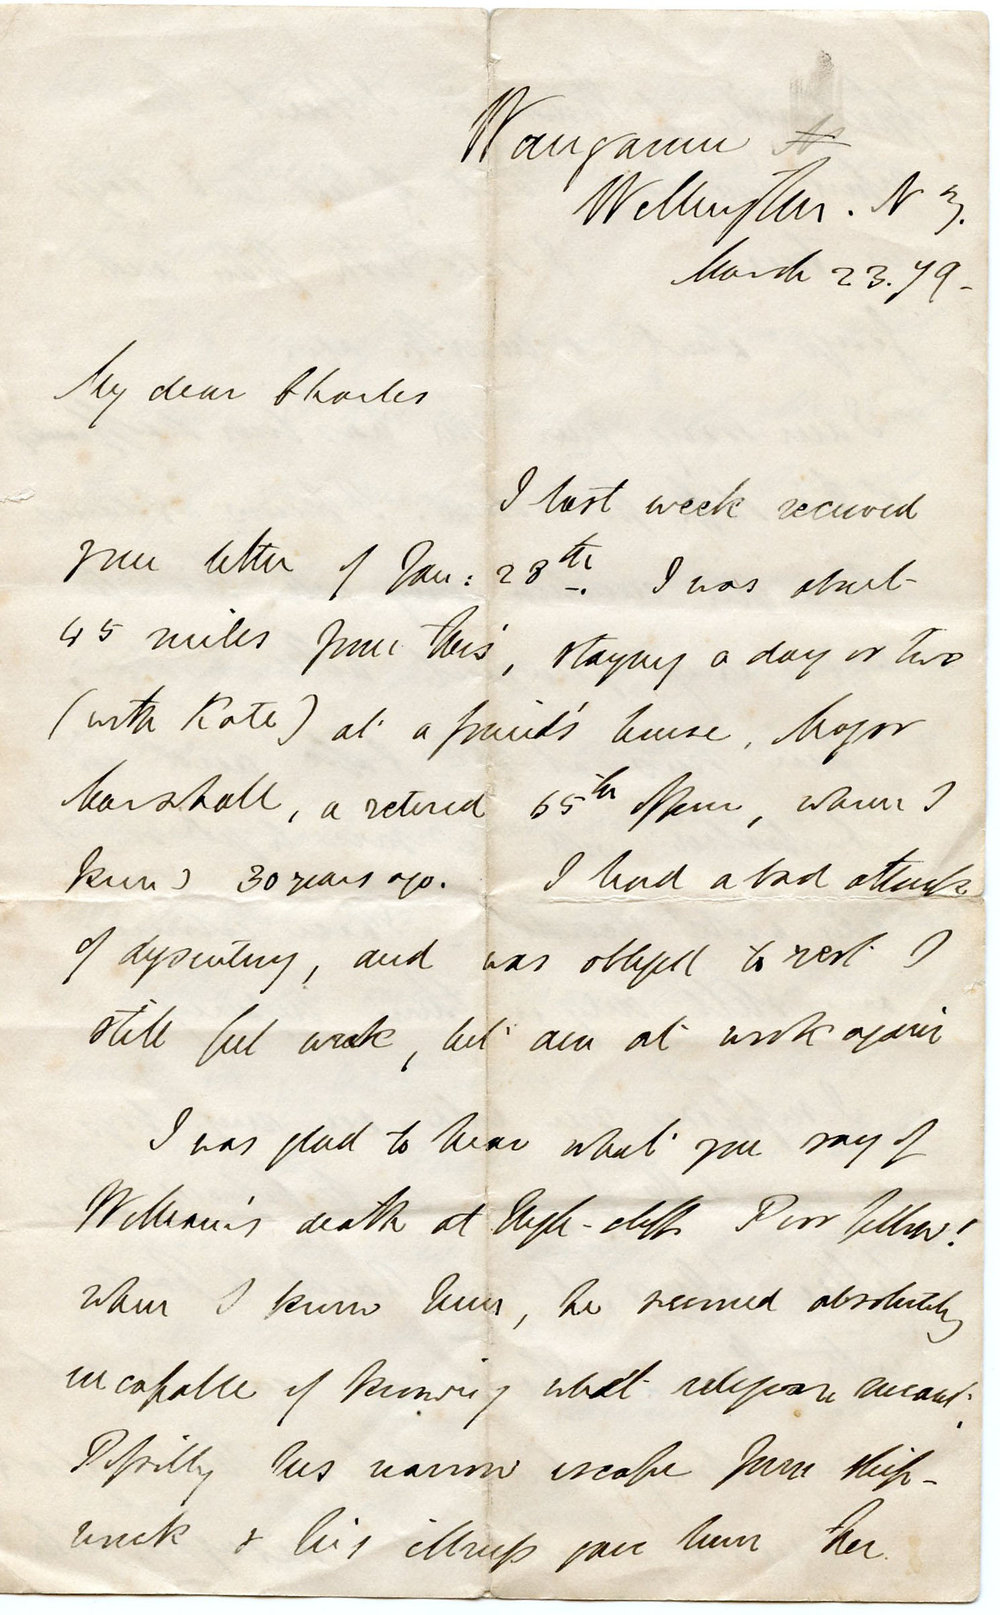 Wanganui
Wellington. N Z.
March 23. 79 -
My dear Charles
I last week received
your letter of Jan: 28th. I was about
45 miles from this, staying a day or two
(with Kate) at a friend's house, Major
Marshall, a retired 65th Officer, whom I
knew 30 years ago. I had a bad attack
of dysentery, and was obliged to rest I
still feel weak, but am at work again
I was glad to hear what you say of
William's death at High-cliffe Poor fellow!
when I knew him, he seemed absolutely
incapable of knowing what religion meant.
Possibly his narrow escape from ship-
wreck & his illness gave him